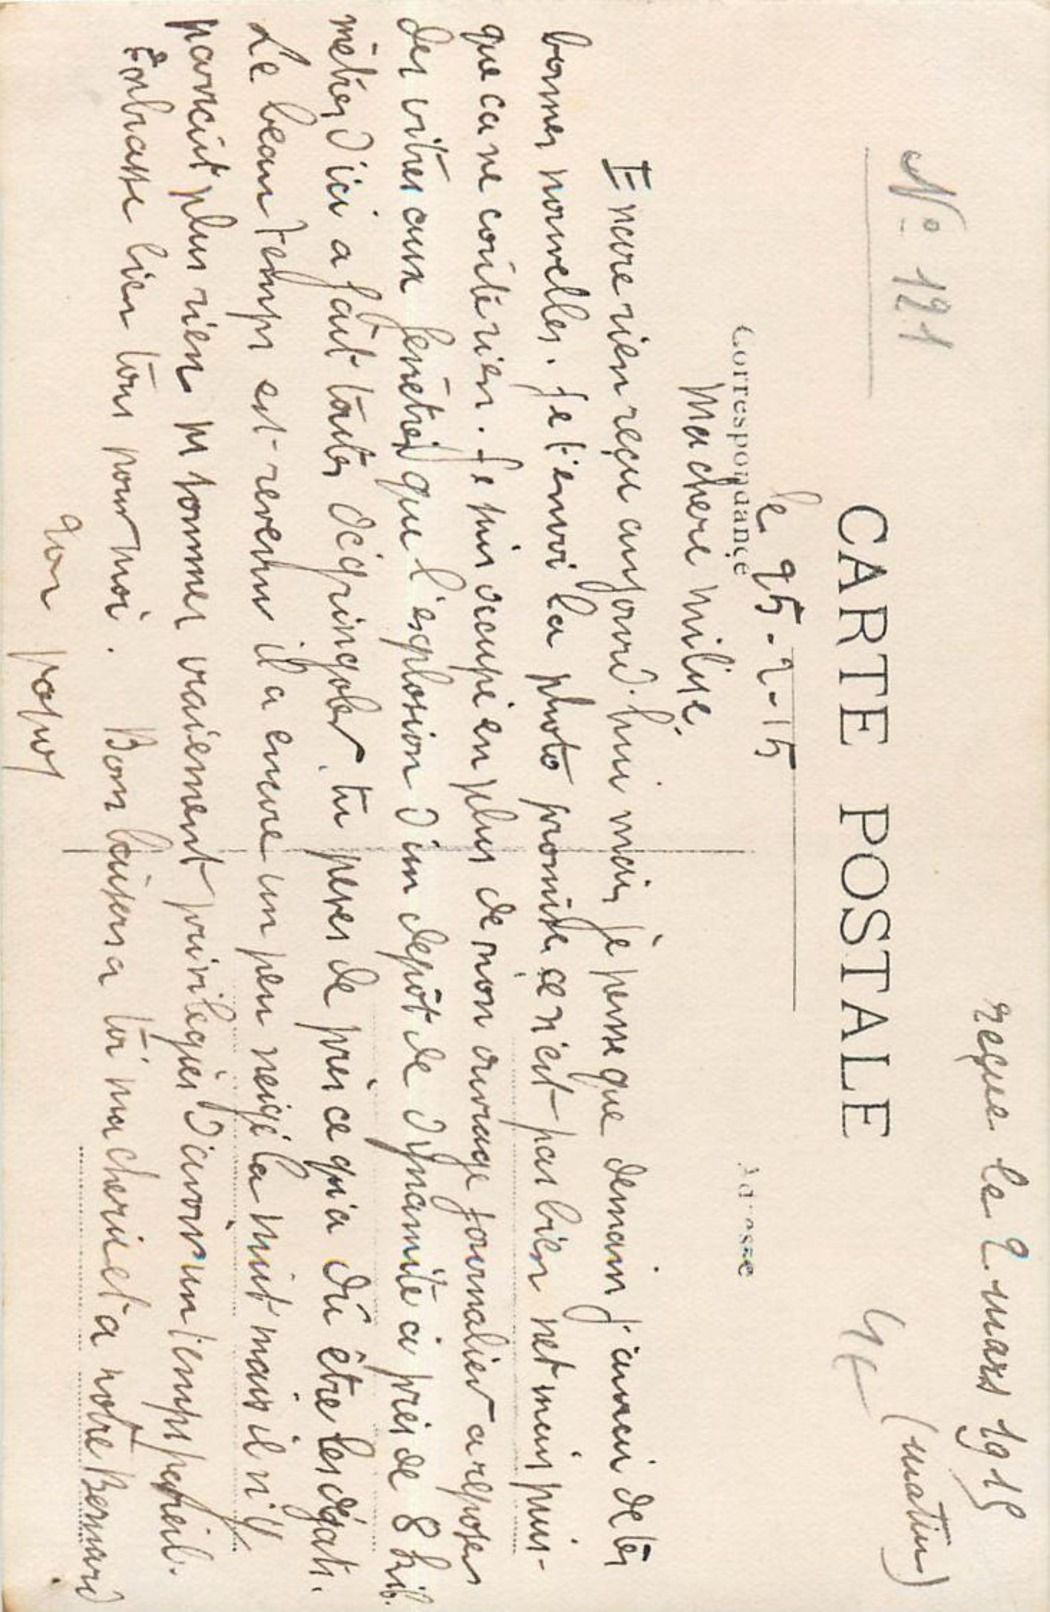 reçue le 2 mars 1915
(matin)
N° 121
CARTE POSTALE
Correspondance
Adresse
le 25-2-15
Ma chere milise.
Encore rien reçu aujourd'hui mais je pense que demain j'aurai de tes
bonnes nouvelles. Je t'envoi la photo promise, ce n'est pas bien net mais puis-
que ca ne coute rien. Je suis occupé en plus de mon ouvrage journalier a reposer
des vitres aux fenêtres que l'explosion d'un depôt de dynamite a près de 8 kil.
mètres d'ici a fait toutes dégringoler, tu penses de près ce qu'a dû être les dégats.
Le beau temps est revenu il a encore un peu neigé la nuit mais il n'y
parait plus rien ns sommes vraiement privilégiés d'avoir un temps pareil.
Embrasse bien tous pour moi. Bons baisers a toi ma cherie et a notre Bernard
ton